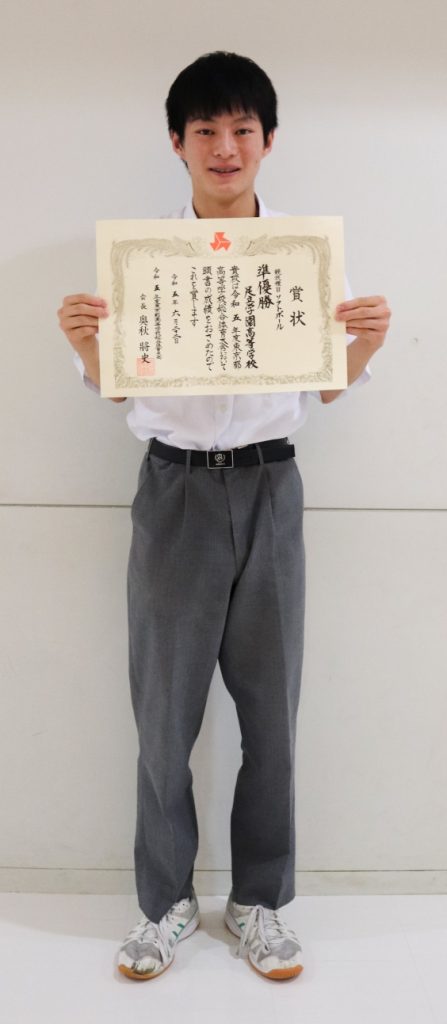 賞状
競技種目 ソフトボール
準優勝
足立学園高等学校
貴校は令和五年度東京都
高等学校総合体育大会において
頭書の成績をおさめたので
これを賞します
令和五年六月吉日
会長 奥秋將史